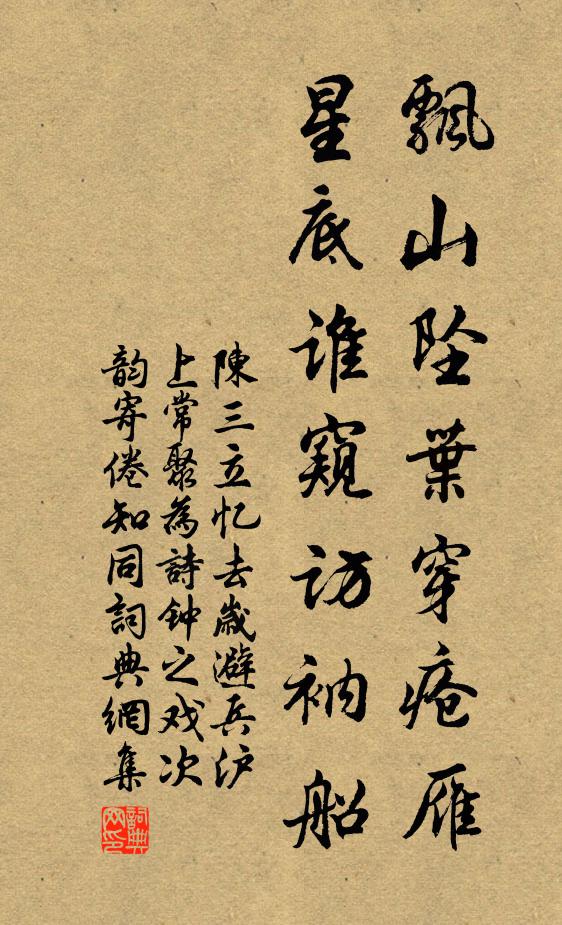 飄山墜葉穿瘡雁
星底誰窺訪衲船
陳三立忆去歲避兵沪
上常聚為詩钟之戏次
韵寄倦知同詞典網集
詞典网印